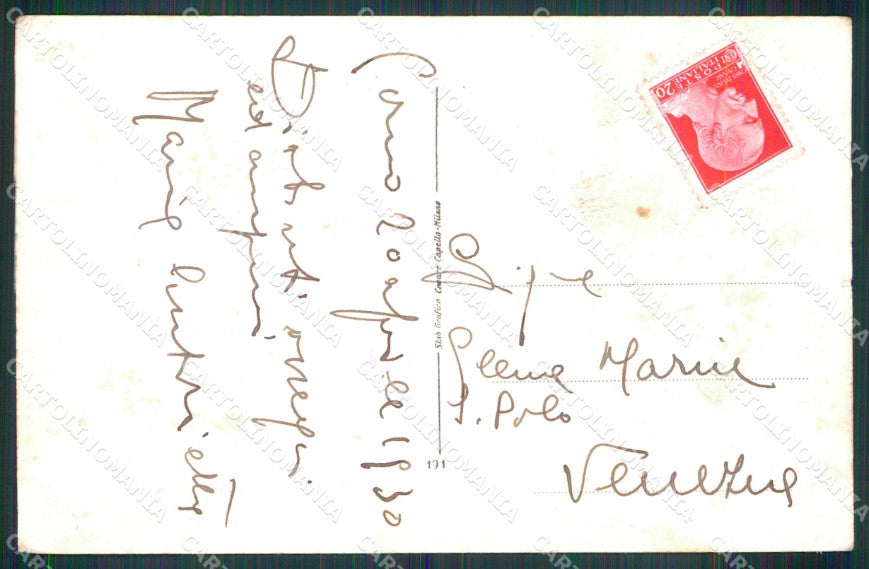 Como 20 aprile 1930
Distinti ossequi
ed auguri
Maria Antonietta
Elena Marin
S. Polo
Venezia
Stab Grafico Cesare Capello-Milano
191
POSTE
ITALIANE
20
CARTOLINOMANIA